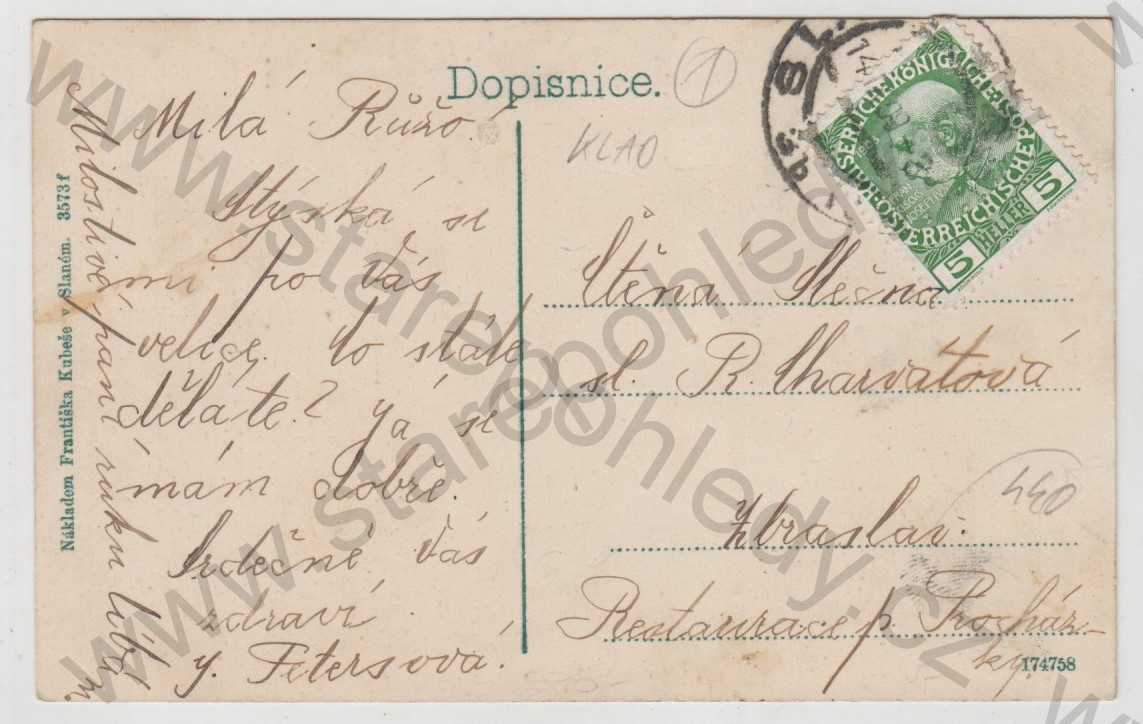 Dopisnice.
1
KLAD
Milá Růžo.
Stýská se
mi po Vás
velice, co stále
děláte? já se
mám dobře.
Srdečně Vás
zdraví
Petersová.
Milostivé paní ruku líbá
Nákladem Františka Kubeše v Slaném. 3573f
KAISERLICHE KÖNIGLICHE
ÖSTERREICHISCHE POST
5 HELLER 5
Ctěná Slečna
sl. R. Charvátová
440
Zbraslav.
Restaurace p. Procház-
ky.
174758
www.stareoohledy.cz
www.stareoohledy.cz